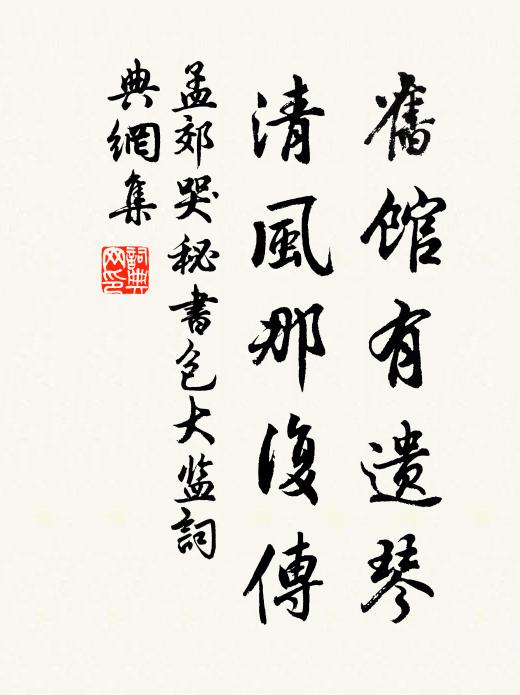 舊館有遺琴
清風那復傳
孟郊哭秘書包大监詞
典網集
詞典網印